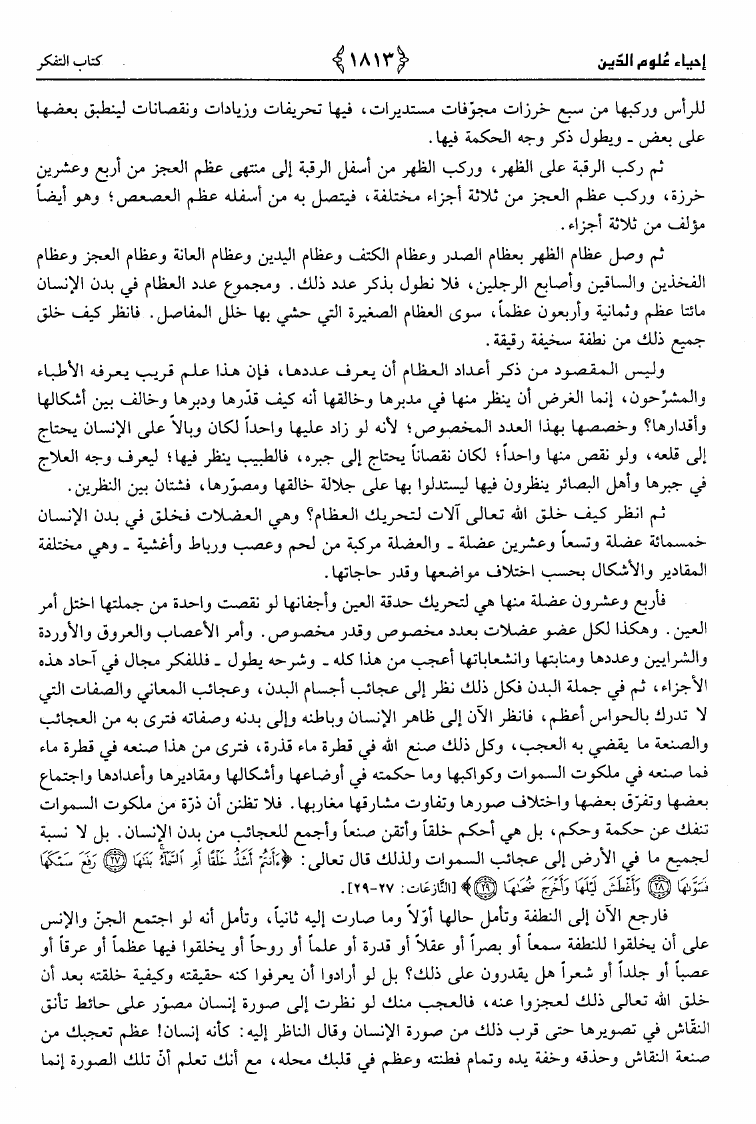 إحياء عُلوم الدّين
﴿١٨١٣﴾
كتاب التفكر
للرأس وركبها من سبع خرزات مجوّفات مستديرات، فيها تحريفات وزيادات ونقصانات لينطبق بعضها
على بعض ـ ويطول ذكر وجه الحكمة فيها.
ثم ركب الرقبة على الظهر، وركب الظهر من أسفل الرقبة إلى منتهى عظم العجز من أربع وعشرين
خرزة، وركب عظم العجز من ثلاثة أجزاء مختلفة، فيتصل به من أسفله عظم العصعص؛ وهو أيضاً
مؤلف من ثلاثة أجزاء.
ثم وصل عظام الظهر بعظام الصدر وعظام الكتف وعظام اليدين وعظام العانة وعظام العجز وعظام
الفخذين والساقين وأصابع الرجلين، فلا نطول بذكر عدد ذلك. ومجموع عدد العظام في بدن الإنسان
مائتا عظم وثمانية وأربعون عظماً، سوى العظام الصغيرة التي حشي بها خلل المفاصل. فانظر كيف خلق
جميع ذلك من نطفة سخيفة رقيقة.
وليس المقصود من ذكر أعداد العظام أن يعرف عددها، فإن هذا علم قريب يعرفه الأطباء
والمشرّحون، إنما الغرض أن ينظر منها في مدبرها وخالقها أنه كيف قدّرها ودبرها وخالف بين أشكالها
وأقدارها؟ وخصصها بهذا العدد المخصوص؛ لأنه لو زاد عليها واحداً لكان وبالاً على الإنسان يحتاج
إلى قلعه، ولو نقص منها واحداً؛ لكان نقصاناً يحتاج إلى جبره، فالطبيب ينظر فيها؛ ليعرف وجه العلاج
في جبرها وأهل البصائر ينظرون فيها ليستدلوا بها على جلالة خالقها ومصوّرها، فشتان بين النظرين.
ثم انظر كيف خلق الله تعالى آلات لتحريك العظام؟ وهي العضلات فخلق في بدن الإنسان
خمسمائة عضلة وتسعاً وعشرين عضلة ـ والعضلة مركبة من لحم وعصب ورباط وأغشية ـ وهي مختلفة
المقادير والأشكال بحسب اختلاف مواضعها وقدر حاجاتها.
فأربع وعشرون عضلة منها هي لتحريك حدقة العين وأجفانها لو نقصت واحدة من جملتها اختل أمر
العين. وهكذا لكل عضو عضلات بعدد مخصوص وقدر مخصوص. وأمر الأعصاب والعروق والأوردة
والشرايين وعددها ومنابتها وانشعاباتها أعجب من هذا كله ـ وشرحه يطول ـ فللفكر مجال في آحاد هذه
الأجزاء، ثم في جملة البدن فكل ذلك نظر إلى عجائب أجسام البدن، وعجائب المعاني والصفات التي
لا تدرك بالحواس أعظم، فانظر الآن إلى ظاهر الإنسان وباطنه وإلى بدنه وصفاته فترى به من العجائب
والصنعة ما يقضي به العجب، وكل ذلك صنع الله في قطرة ماء قذرة، فترى من هذا صنعه في قطرة ماء
فما صنعه في ملكوت السموات وكواكبها وما حكمته في أوضاعها وأشكالها ومقاديرها وأعدادها واجتماع
بعضها وتفرّق بعضها واختلاف صورها وتفاوت مشارقها مغاربها. فلا تظنن أن ذرّة من ملكوت السموات
تنفك عن حكمة وحكم، بل هي أحكم خلقاً وأتقن صنعاً وأجمع للعجائب من بدن الإنسان. بل لا نسبة
لجميع ما في الأرض إلى عجائب السموات ولذلك قال تعالى: ﴿ءَأَنتُمْ أَشَدُّ خَلْقًا أَمِ ٱلسَّمَآءُ بَنَىٰهَا ﴿٢٧﴾ رَفَعَ سَمْكَهَا
فَسَوَّىٰهَا ﴿٢٨﴾ وَأَغْطَشَ لَيْلَهَا وَأَخْرَجَ ضُحَىٰهَا ﴿٢٩﴾﴾ [النَّازعَات: ٢٧-٢٩].
فارجع الآن إلى النطفة وتأمل حالها أوّلاً وما صارت إليه ثانياً، وتأمل أنه لو اجتمع الجنّ والإنس
على أن يخلقوا للنطفة سمعاً أو بصراً أو عقلاً أو قدرة أو علماً أو روحاً أو يخلقوا فيها عظماً أو عرقاً أو
عصباً أو جلداً أو شعراً هل يقدرون على ذلك؟ بل لو أرادوا أن يعرفوا كنه حقيقته وكيفية خلقته بعد أن
خلق الله تعالى ذلك لعجزوا عنه، فالعجب منك لو نظرت إلى صورة إنسان مصوّر على حائط تأنق
النقّاش في تصويرها حتى قرب ذلك من صورة الإنسان وقال الناظر إليه: كأنه إنسان! عظم تعجبك من
صنعة النقاش وحذقه وخفة يده وتمام فطنته وعظم في قلبك محله، مع أنك تعلم أنّ تلك الصورة إنما